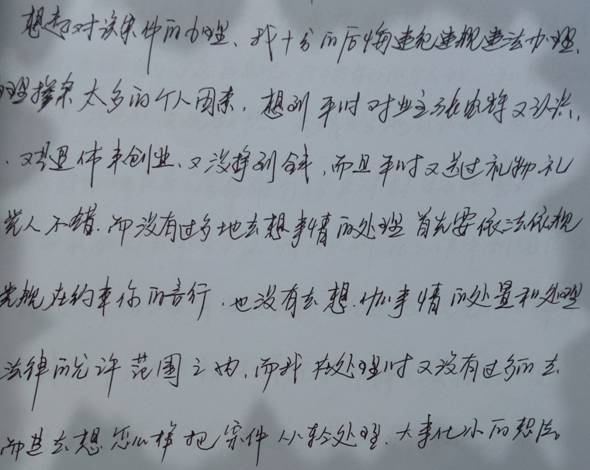 想起对该案件的办理、我十分的后悔违纪违规违法办理,
理掺杂太多的个人因素，想到平时对业主张
又是退休来创业、又没挣到钱，而且平时又送过礼物礼
觉人不错、而没有过多地去想事情的处理首先要依法依规
党规在约束你的言行，也没有去想、做事情的处置和处理
法律的允许范围之内，而我在处理时又没有过多的去
而是去想怎么样把案件从轻处理、大事化小的想法。